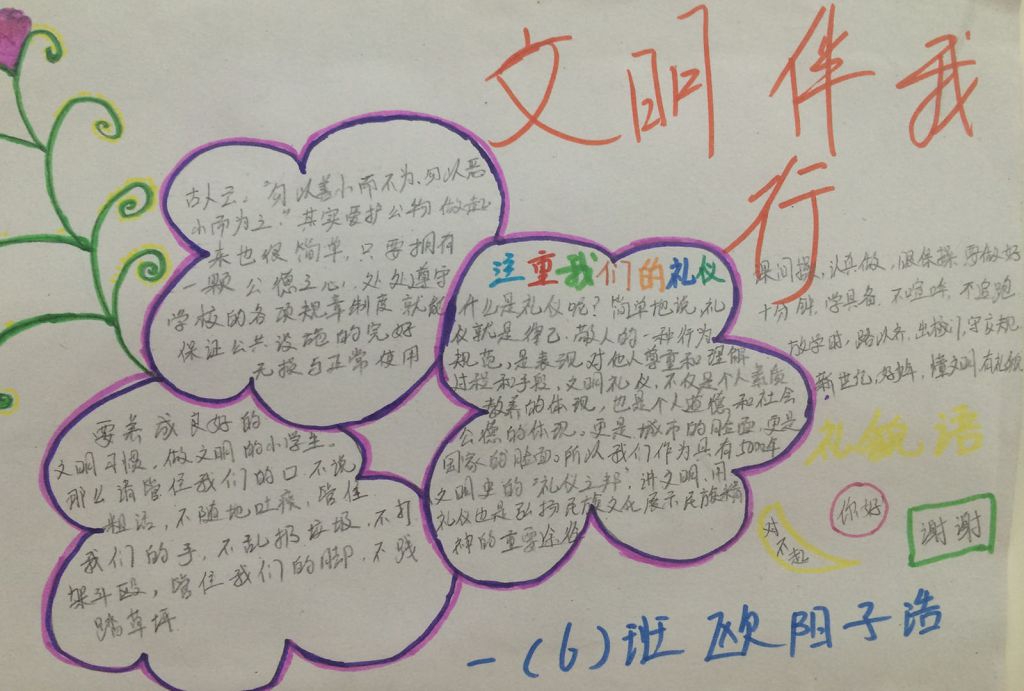 文明伴我
行
古人云:“勿以善小而不为,勿以恶
小而为之.”其实爱护公物做起
来也很简单,只要拥有
一颗公德之心,处处遵守
学校的各项规章制度就能
保证公共设施的完好
无损与正常使用
注重我们的礼仪
什么是礼仪呢?简单地说,礼
仪就是律己、敬人的一种行为
规范,是表现对他人尊重和理解
过程和手段,文明礼仪,不仅是个人素质
教养的体现,也是个人道德和社会
公德的体现。更是城市的脸面,更是
国家的脸面。所以我们作为具有5000年
文明史的“礼仪之邦”,讲文明、用
礼仪也是弘扬民族文化展示民族精
神的重要途径
要养成良好的
文明习惯,做文明的小学生。
那么请管住我们的口,不说
粗话,不随地吐痰,管住
我们的手,不乱扔垃圾,不打
架斗殴,管住我们的脚,不践
踏草坪
课间操,认真做,眼保操要做好
十分钟,学具备,不喧哗,不追跑
放学时,路队齐,出校门,守交规
新世纪,好少年,懂文明有礼貌
礼貌语
对不起
你好
谢谢
一(6)班 欧阳子浩